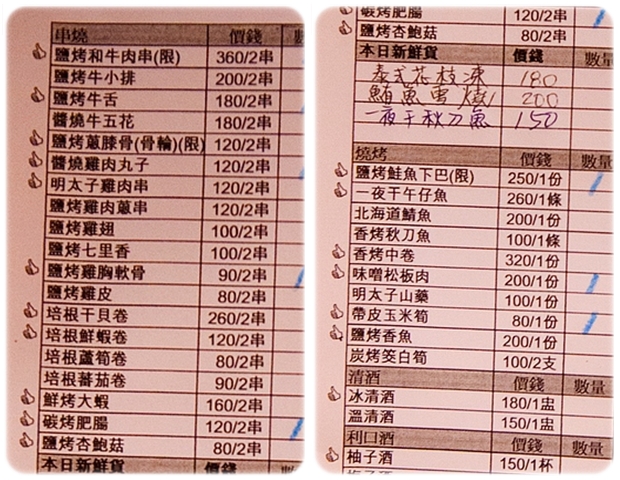 串燒 價錢 數
鹽烤和牛肉串(限) 360/2串
鹽烤牛小排 200/2串
鹽烤牛舌 180/2串
醬燒牛五花 180/2串
鹽烤蔥膝骨(骨輪)(限) 120/2串
醬燒雞肉丸子 120/2串
明太子雞肉串 120/2串
鹽烤雞肉蔥串 120/2串
鹽烤雞翅 100/2串
鹽烤七里香 100/2串
鹽烤雞胸軟骨 90/2串
鹽烤雞皮 80/2串
培根干貝卷 260/2串
培根鮮蝦卷 120/2串
培根蘆筍卷 80/2串
培根蕃茄卷 90/2串
鮮烤大蝦 160/2串
碳烤肥腸 120/2串
鹽烤杏鮑菇 80/2串
本日新鮮貨 價錢
碳烤肥腸 120/2串
鹽烤杏鮑菇 80/2串
本日新鮮貨 價錢 數量
泰式花枝凍 180
鮪魚串燒 200
一夜干秋刀魚 150
燒烤 價錢 數量
鹽烤鮭魚下巴(限) 250/1份
一夜干午仔魚 260/1條
北海道鯖魚 200/1份
香烤秋刀魚 100/1條
香烤中卷 320/1份
味噌松板肉 200/1份
明太子山藥 100/1份
帶皮玉米筍 80/1份
鹽烤香魚 200/1份
炭烤筊白筍 100/2支
清酒 價錢 數量
冰清酒 180/1盅
溫清酒 150/1盅
利口酒 價錢 數量
柚子酒 150/1杯